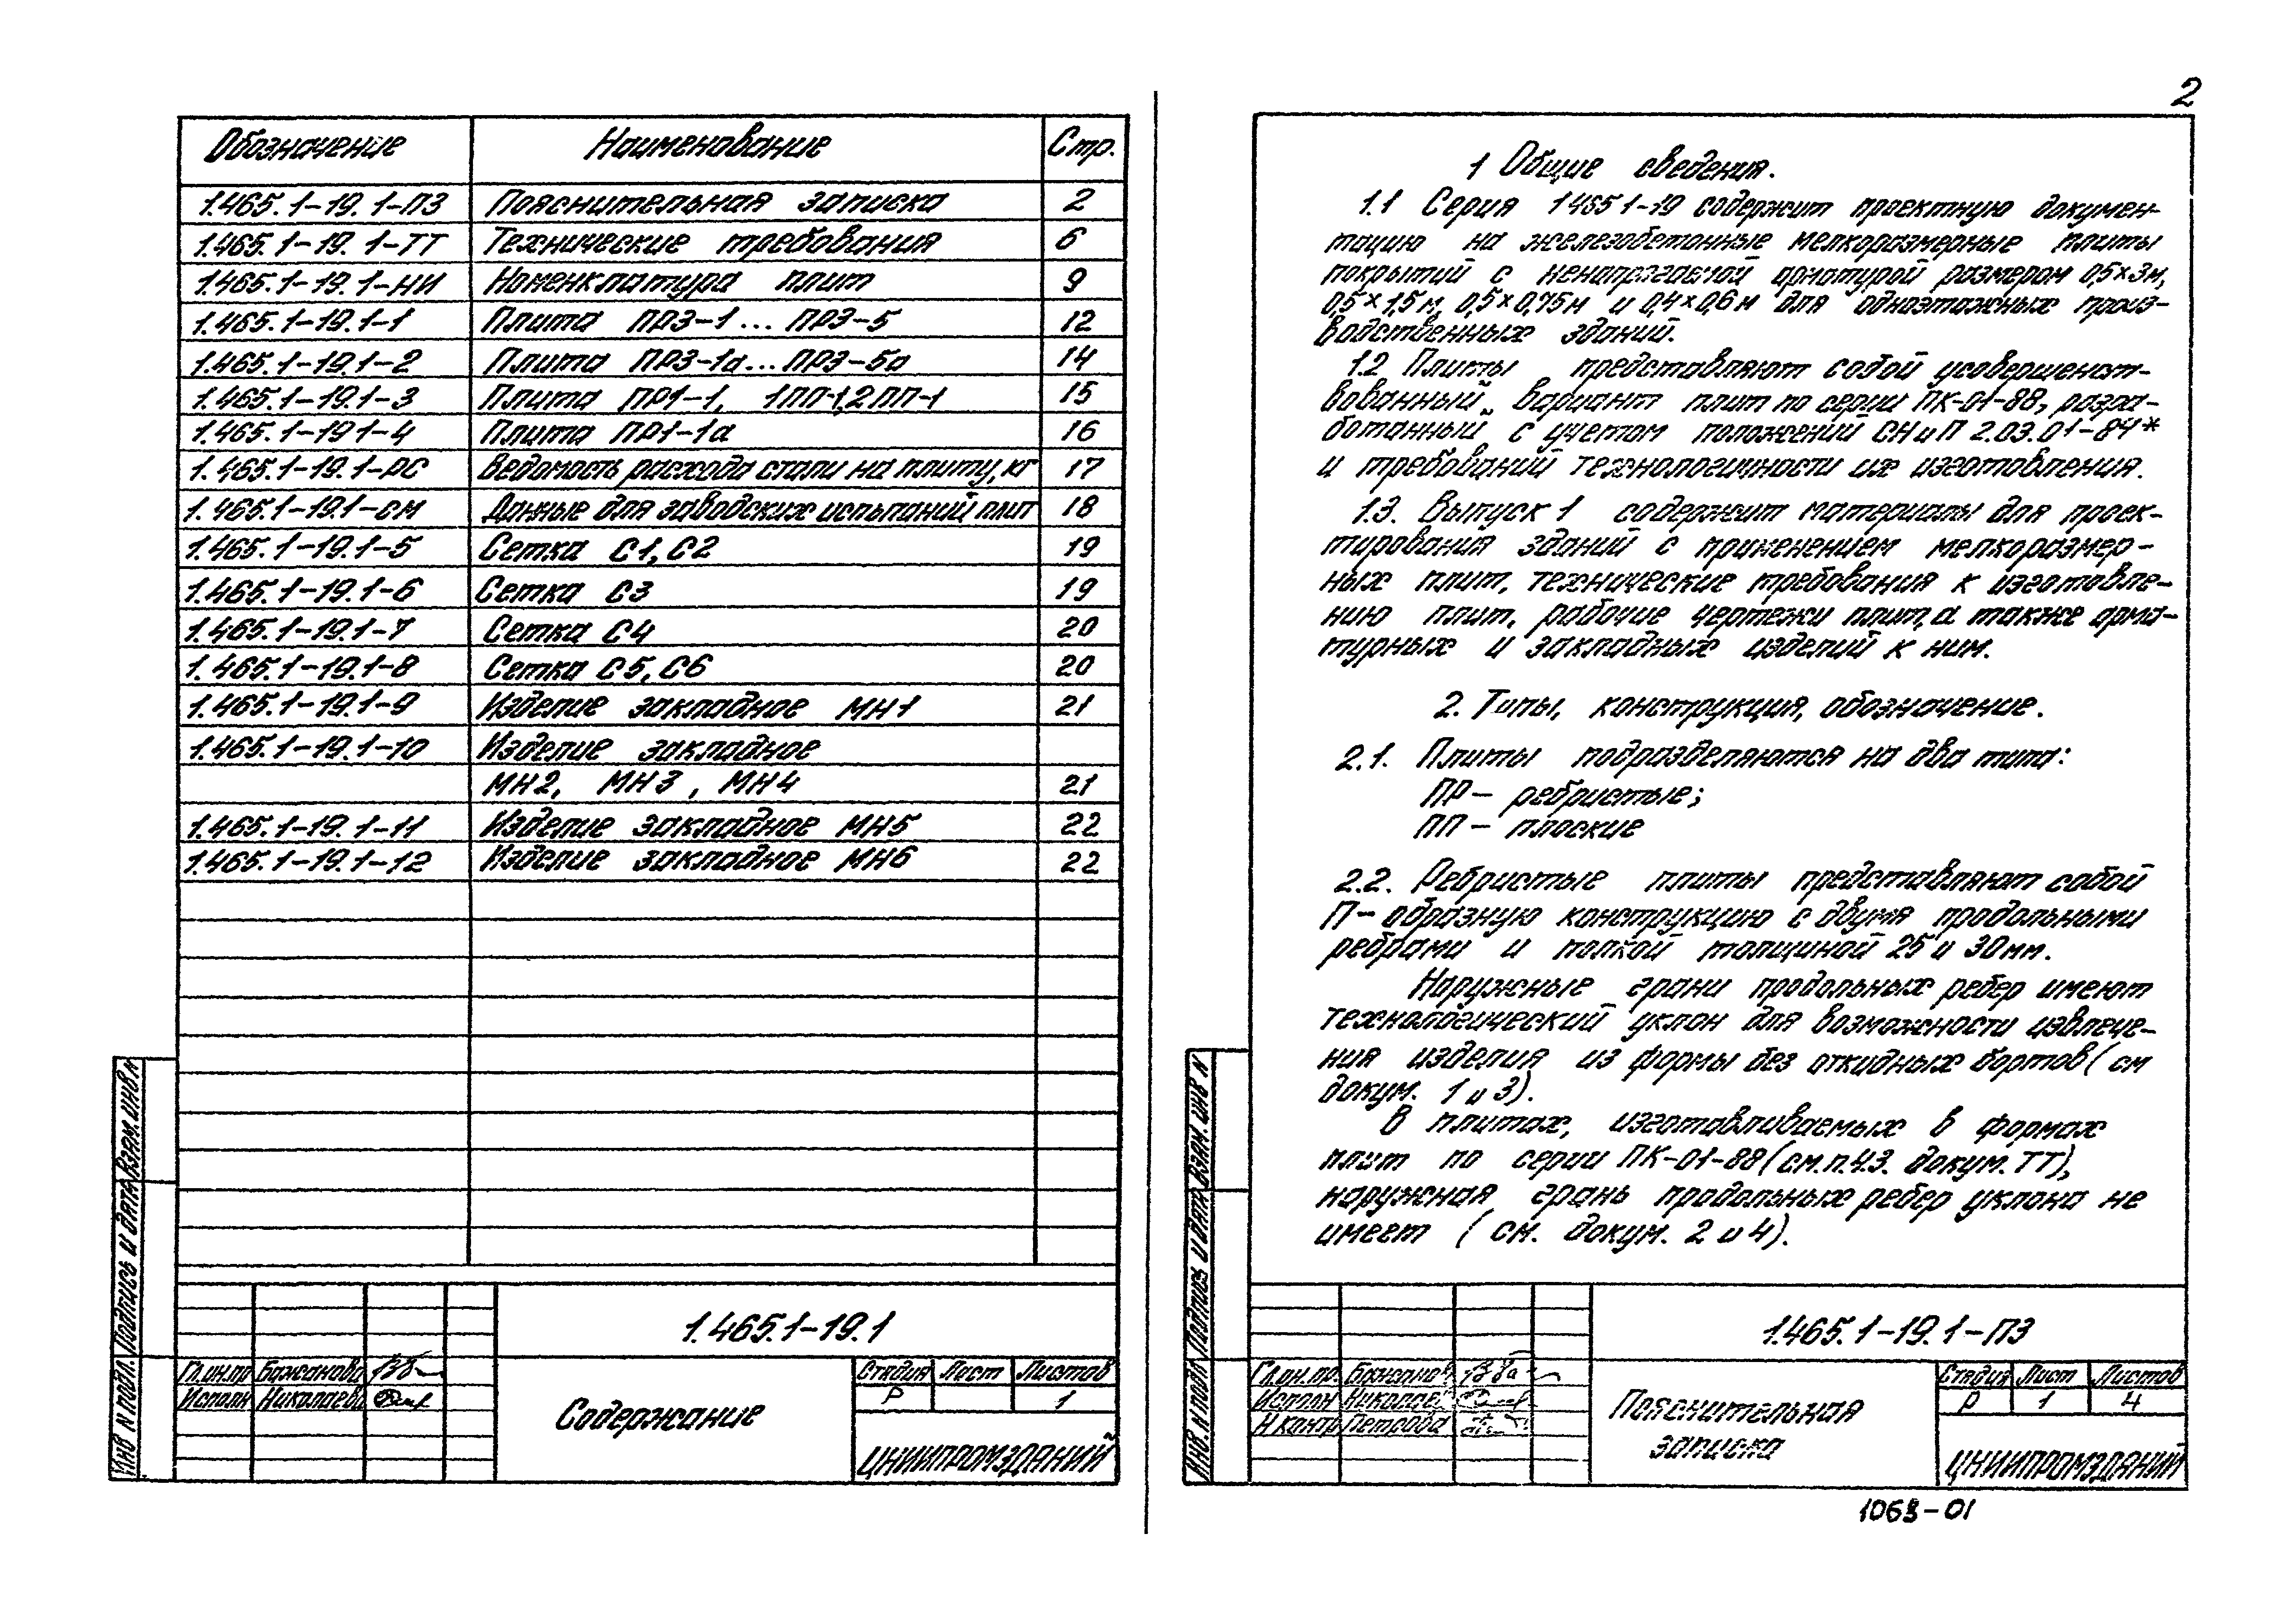 2
Обозначение Наименование Стр.
1.465.1-19.1-ПЗ Пояснительная записка 2
1.465.1-19.1-ТТ Технические требования 6
1.465.1-19.1-НИ Номенклатура плит 9
1.465.1-19.1-1 Плита ПР3-1...ПР3-5 12
1.465.1-19.1-2 Плита ПР3-1а...ПР3-5а 14
1.465.1-19.1-3 Плита ПР1-1, 1ПП-1,2ПП-1 15
1.465.1-19 1-4 Плита ПР1-1а 16
1.465.1-19.1-РС Ведомость расхода стали на плиту, кг 17
1.465.1-19.1-СМ Данные для заводских испытаний плит 18
1.465.1-19.1-5 Сетка С1, С2 19
1.465.1-19.1-6 Сетка С3 19
1.465.1-19.1-7 Сетка С4 20
1.465.1-19.1-8 Сетка С5, С6 20
1.465.1-19.1-9 Изделие закладное МН1 21
1.465.1-19.1-10 Изделие закладное
МН2, МН3, МН4 21
1.465.1-19.1-11 Изделие закладное МН5 22
1.465.1-19.1-12 Изделие закладное МН6 22
1.465.1-19.1
Гл.ин.пр Бажанова
Исполн Николаева
Содержание
Стадия Лист Листов
Р 1
ЦНИИПРОМЗДАНИЙ
Инв N подл. Подпись и дата Взам. инв N
1 Общие сведения.
1.1 Серия 1 465 1-19 содержит проектную докумен-
тацию на железобетонные мелкоразмерные плиты
покрытий с ненапрягаемой арматурой размером 0,5×3м,
0,5×1,5м, 0,5×0,75м и 0,4×0,6м для одноэтажных произ-
водственных зданий.
1.2 Плиты представляют собой усовершенст-
вованный вариант плит по серии ПК-01-88, разра-
ботанный с учетом положений СНиП 2.03.01-84*
и требований технологичности их изготовления.
1.3. Выпуск 1 содержит материалы для проек-
тирования зданий с применением мелкоразмер-
ных плит, технические требования к изготовле-
нию плит, рабочие чертежи плит, а также арма-
турных и закладных изделий к ним.
2. Типы, конструкция, обозначение.
2.1. Плиты подразделяются на два типа:
ПР- ребристые;
ПП- плоские
2.2. Ребристые плиты представляют собой
П-образную конструкцию с двумя продольными
ребрами и полкой толщиной 25 и 30мм.
Наружные грани продольных ребер имеют
технологический уклон для возможности извлече-
ния изделия из формы без откидных бортов (см
докум. 1 и 3).
В плитах, изготавливаемых в формах
плит по серии ПК-01-88 (см.п.4.3. докум. ТТ),
наружная грань продольных ребер уклона не
имеет (см. докум. 2 и 4).
1.465.1-19.1-ПЗ
Гл.ин.пр. Бажанова
Исполн Николаев
Н.контр Петрова
Пояснительная
записка
Стадия Лист Листов
Р 1 4
ЦНИИПРОМЗДАНИЙ
Инв. N подл Подпись и дата Взам. инв N